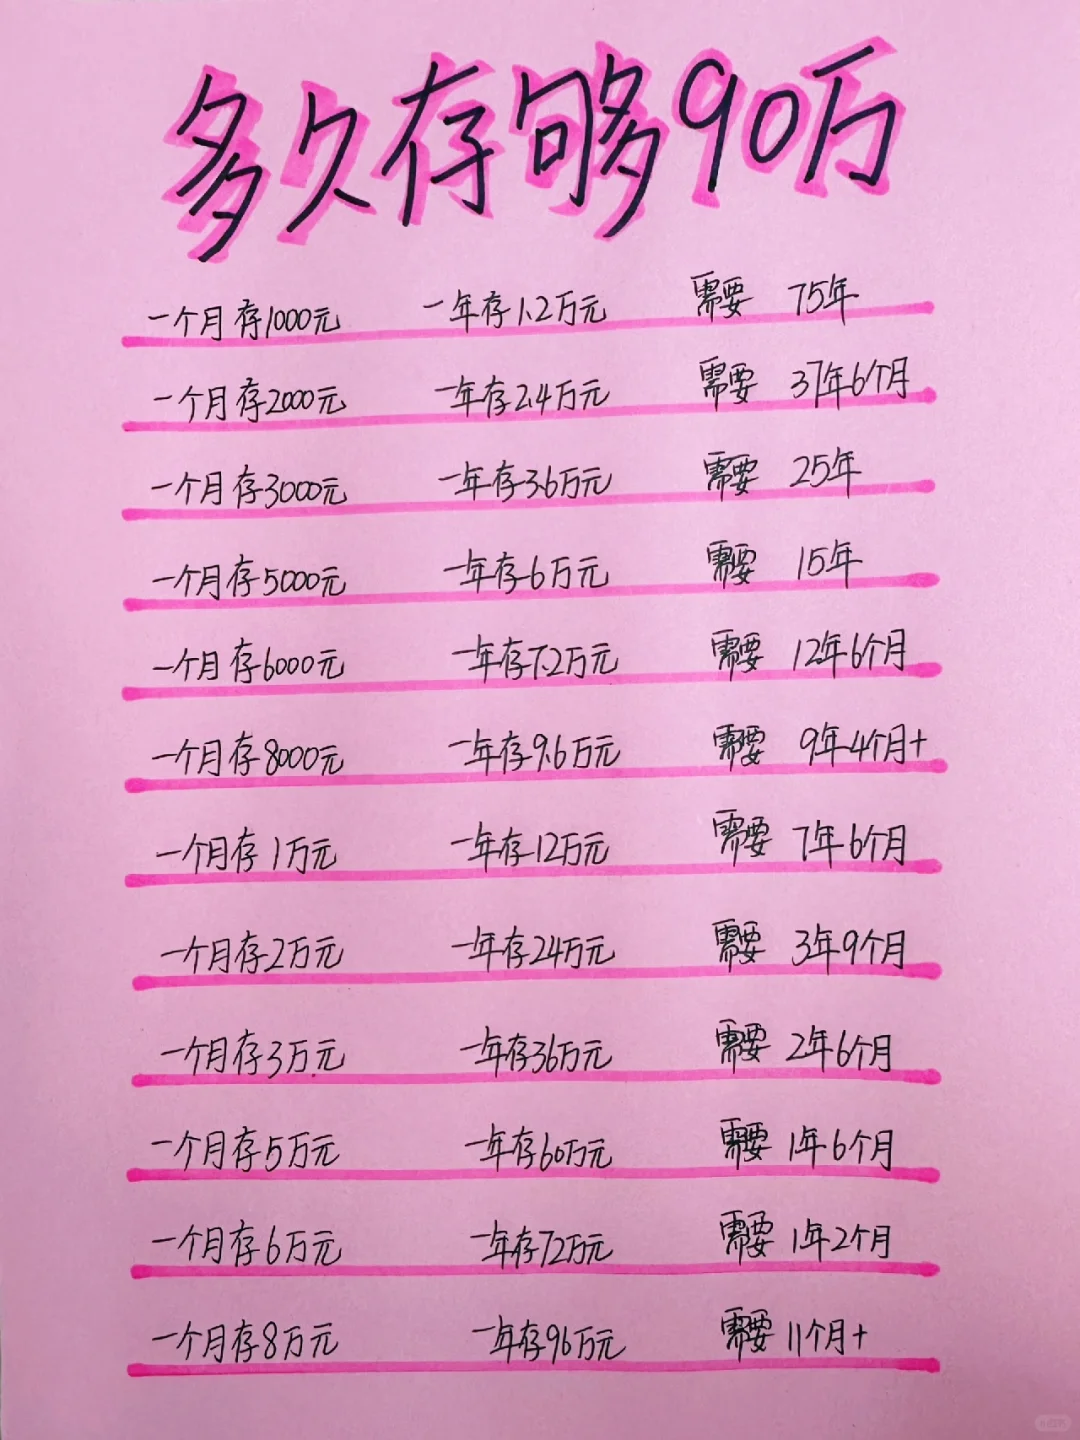 多久存够90万
一个月存1000元 一年存1.2万元 需要 75年
一个月存2000元 一年存2.4万元 需要 37年6个月
一个月存3000元 一年存3.6万元 需要 25年
一个月存5000元 一年存6万元 需要 15年
一个月存6000元 一年存7.2万元 需要 12年6个月
一个月存8000元 一年存9.6万元 需要 9年4个月+
一个月存1万元 一年存12万元 需要 7年6个月
一个月存2万元 一年存24万元 需要 3年9个月
一个月存3万元 一年存36万元 需要 2年6个月
一个月存5万元 一年存60万元 需要 1年6个月
一个月存6万元 一年存72万元 需要 1年2个月
一个月存8万元 一年存96万元 需要 11个月+
小红书